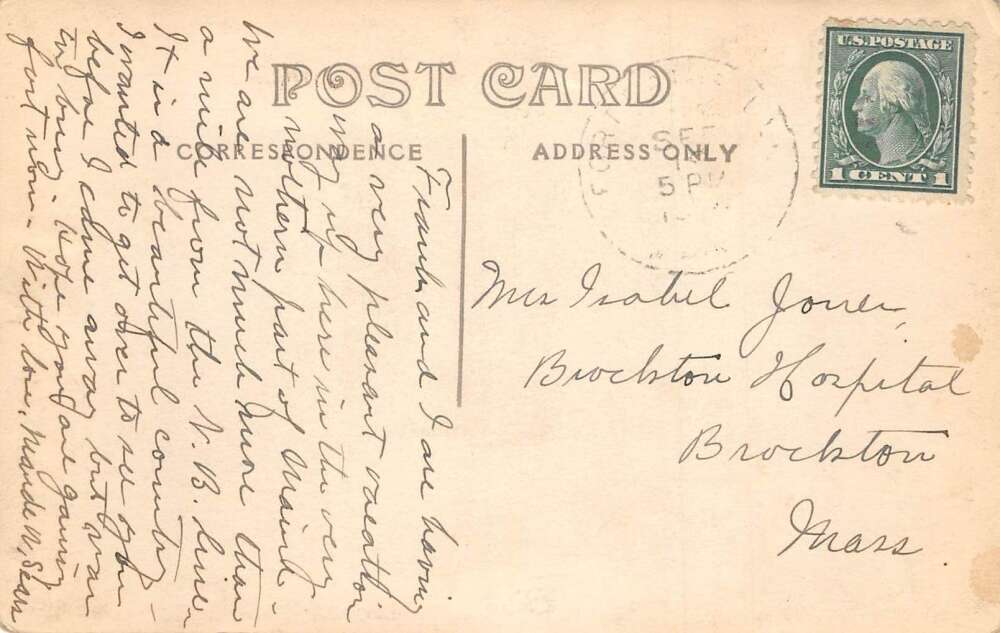 POST CARD
CORRESPONDENCE
ADDRESS ONLY
U.S. POSTAGE
1 CENT 1
SEP
5 PM
Frank and I are having
a very pleasant vacation
up here in the very
northern part of Maine -
We are not much more than
a mile from the N. B. line.
It is a beautiful country -
I wanted to get over to see you
before I came away but was
too busy. Hope you are gaining
fast now - With love, Maude N. Sears
Mrs Isabel Jones,
Brockton Hospital
Brockton
Mass.